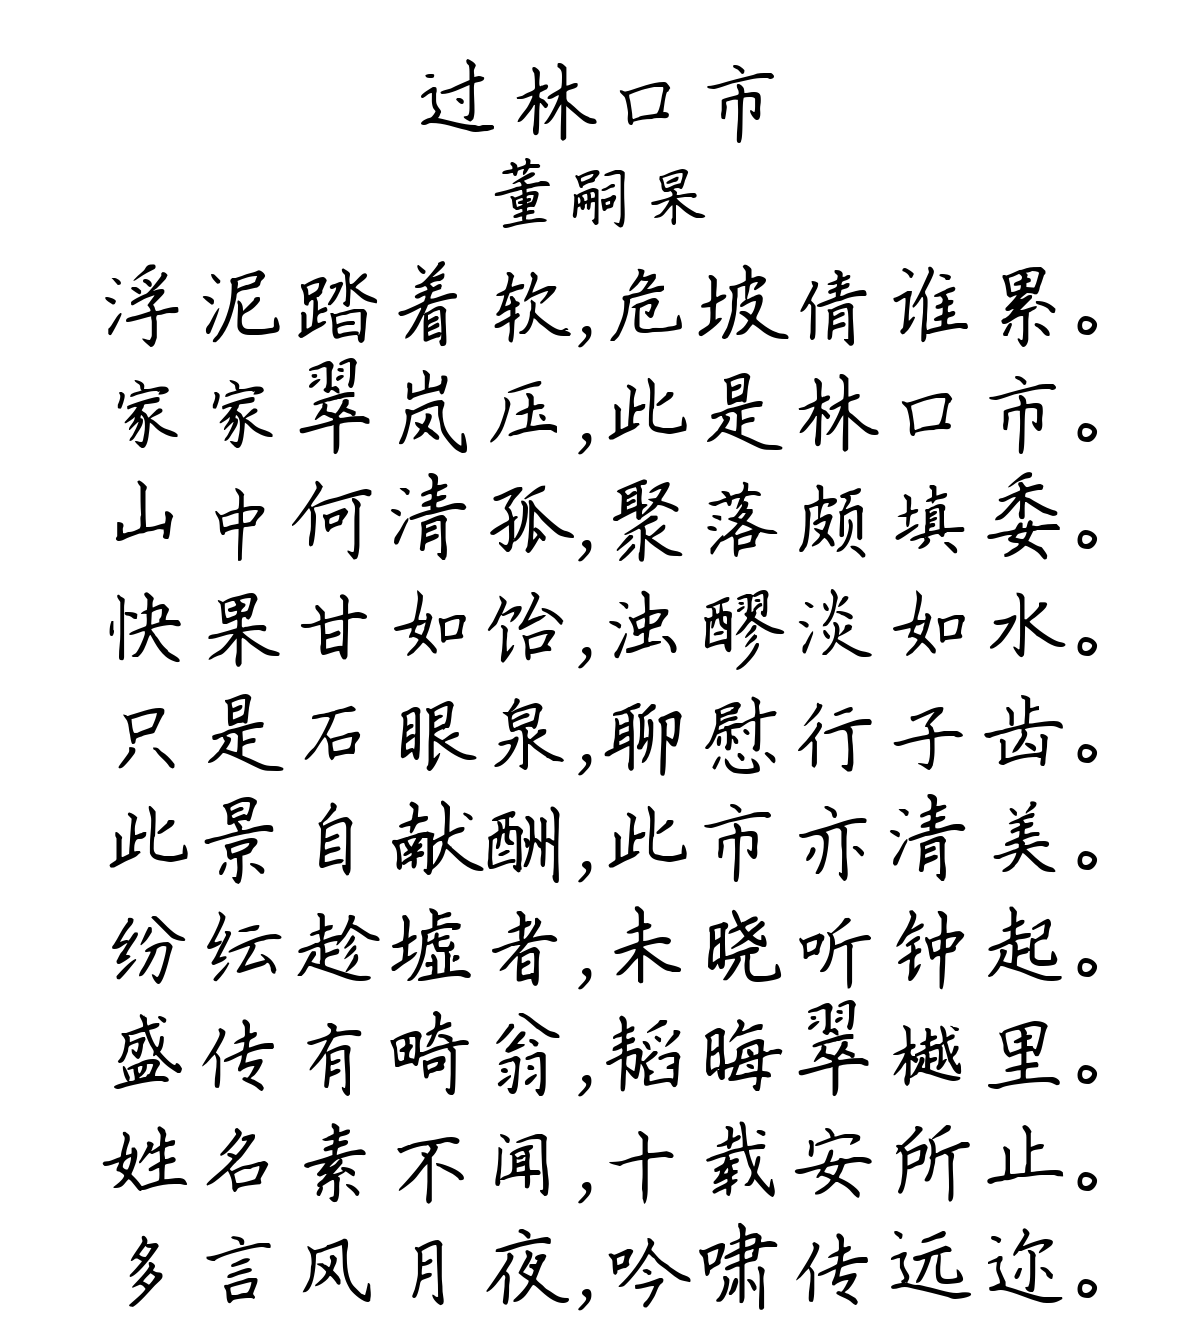 过林口市
董嗣杲
浮泥踏着软,危坡倩谁累。
家家翠岚压,此是林口市。
山中何清孤,聚落颇填委。
快果甘如饴,浊醪淡如水。
只是石眼泉,聊慰行子齿。
此景自献酬,此市亦清美。
纷纭趁墟者,未晓听钟起。
盛传有畸翁,韬晦翠樾里。
姓名素不闻,十载安所止。
多言风月夜,吟啸传远迩。